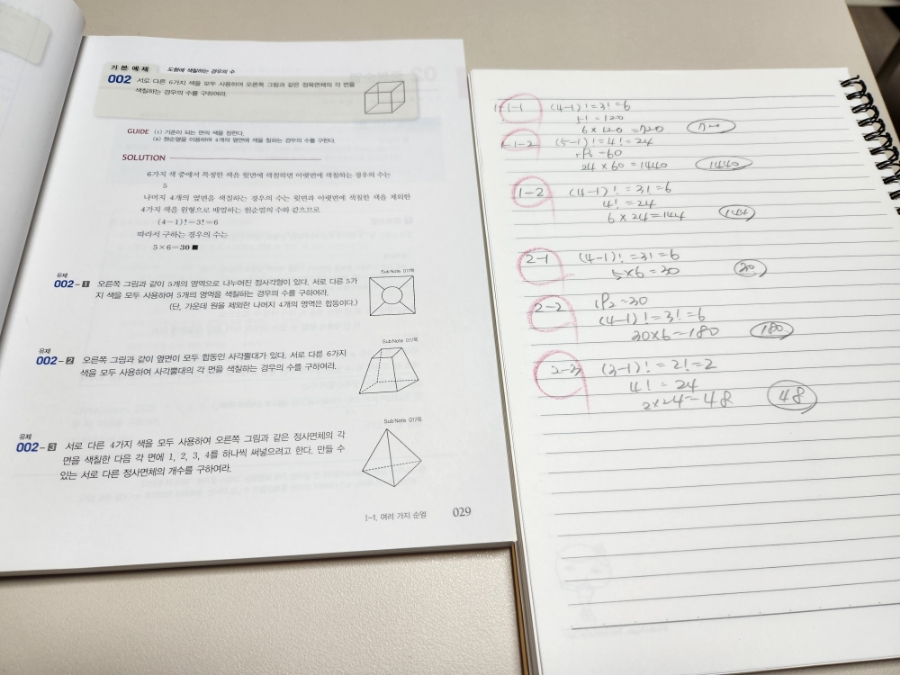 기본예제 도형에 색칠하는 경우의 수
002 서로 다른 6가지 색을 모두 사용하여 오른쪽 그림과 같은 정육면체의 각 면을
색칠하는 경우의 수를 구하여라.
GUIDE (i) 기준이 되는 면의 색을 정한다.
(ii) 원순열을 이용하여 4개의 옆면에 색을 칠하는 경우의 수를 구한다.
SOLUTION
6가지 색 중에서 특정한 색을 윗면에 색칠하면 아랫면에 색칠하는 경우의 수는
5
나머지 4개의 옆면을 색칠하는 경우의 수는 윗면과 아랫면에 색칠한 색을 제외한
4가지 색을 원형으로 배열하는 원순열의 수와 같으므로
(4-1)!=3!=6
따라서 구하는 경우의 수는
5×6=30 ■
유제 SubNote 017쪽
002-1 오른쪽 그림과 같이 5개의 영역으로 나누어진 정사각형이 있다. 서로 다른 5가
지 색을 모두 사용하여 5개의 영역을 색칠하는 경우의 수를 구하여라.
(단, 가운데 원을 제외한 나머지 4개의 영역은 합동이다.)
유제 SubNote 017쪽
002-2 오른쪽 그림과 같이 옆면이 모두 합동인 사각뿔대가 있다. 서로 다른 6가지
색을 모두 사용하여 사각뿔대의 각 면을 색칠하는 경우의 수를 구하여라.
유제 SubNote 017쪽
002-3 서로 다른 4가지 색을 모두 사용하여 오른쪽 그림과 같은 정사면체의 각
면을 색칠한 다음 각 면에 1, 2, 3, 4를 하나씩 써넣으려고 한다. 만들 수
있는 서로 다른 정사면체의 개수를 구하여라.
I-1. 여러 가지 순열 029
1-1-1 (4-1)!=3!=6
6×120=720 720
1-2 (5-1)!=4!=24
24×60=1440 1440
1-2 (4-1)!=3!=6
4!=24
6×24=144 144
2-1 (4-1)!=3!=6
5×6=30 30
2-2
(4-1)!=3!=6
30×6=180 180
2-3 (3-1)!=2!=2
4!=24
2×24=48 48